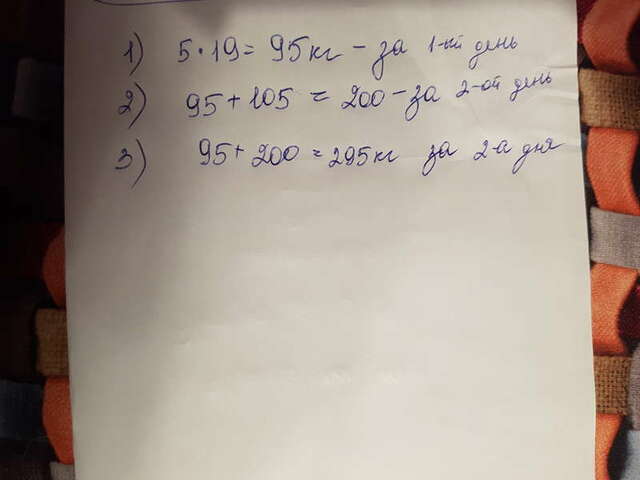 1) 5·19=95кг – за 1-ый день
2) 95+105=200 – за 2-ой день
3) 95+200=295кг за 2-а дня